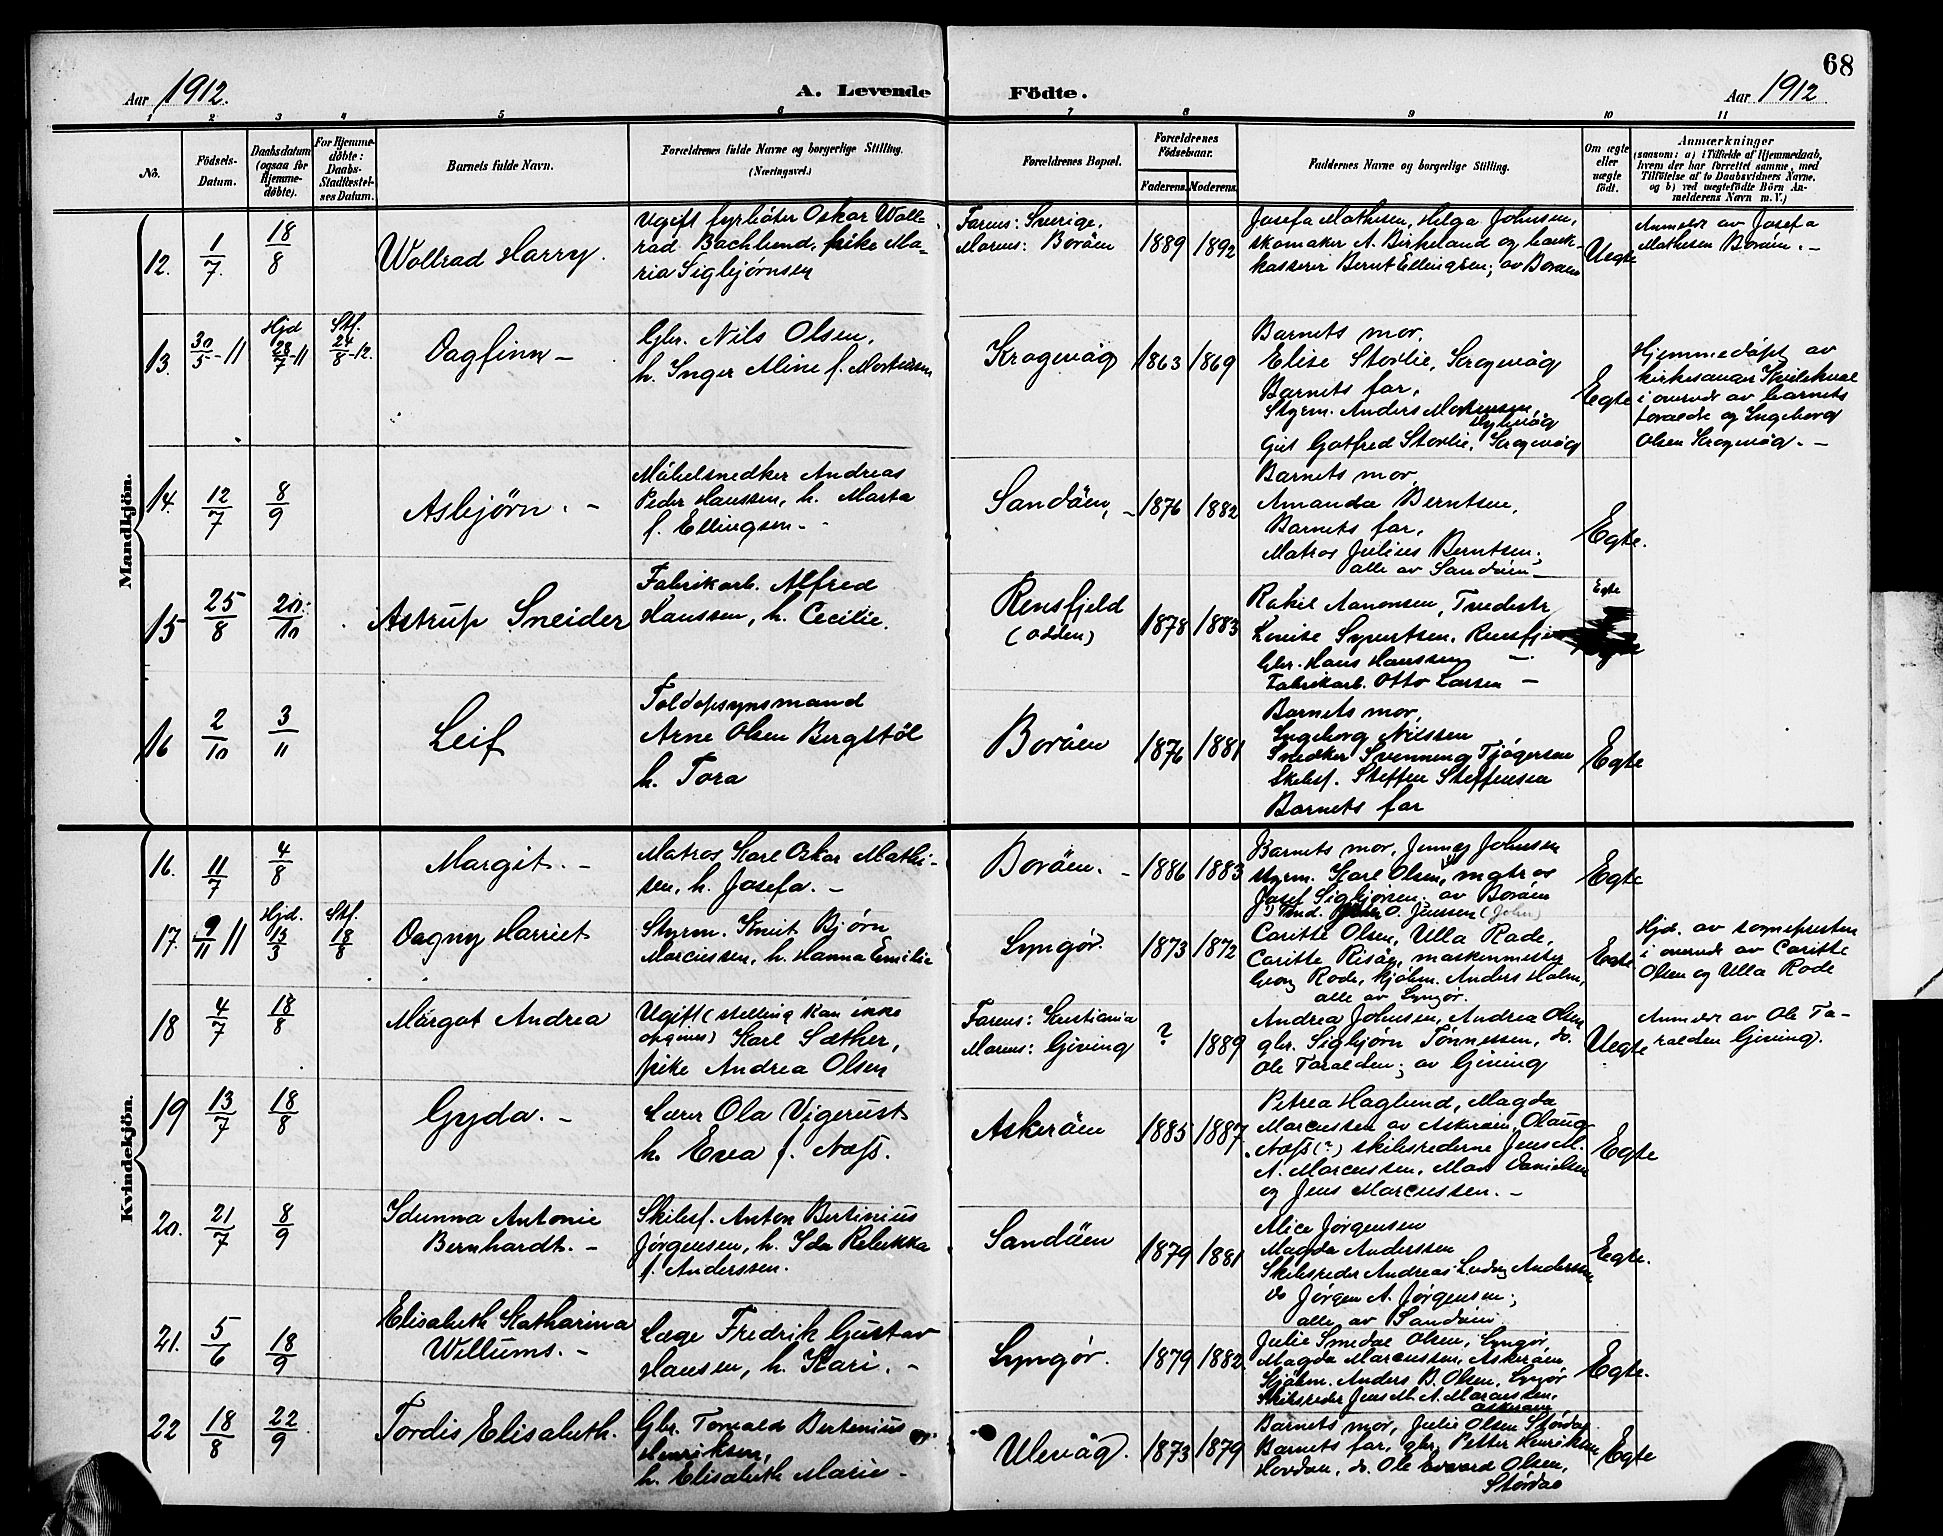 68
Aar 1912.
A. Levende Födte.
Aar 1912
1 2 3 4 5 6 7 8 9 10 11
No.
Födsels-
Datum.
Daabsdatum
(ogsaa for
Hjemme-
döbte).
For Hjemme-
döbte:
Daabs-
Stadfæstel-
ses Datum.
Barnets fulde Navn.
Forældrenes fulde Navne og borgerlige Stilling.
(Næringsvei.)
Forældrenes Bopæl.
Forældrenes
Födselsaar.
Faderens. Moderens.
Faddernes Navne og borgerlige Stilling.
Om ægte
eller
uægte
födt.
Anmærkninger
(saasom: a) i Tilfælde af Hjemmedaab,
hvem der har forrettet samme, med
Tilföielse af to Daabsvidners Navne,
og b) ved uægtefödte Börn An-
melderens Navn m. V.)
Mandkjön.
12.
1/7.
18/8
Wollrad Harry.
Ugift fyrböter Oskar Woll-
rad Bachlund, pike Ma-
ria Sigbjørnsen
Farens: Sverige.
Morens: Boröen
1889
1892
Josefa Mathisen, Helga Johnsen,
skomaker A. Birkeland og bank-
kasserer Bernt Ellingsen; av Boröen
Uegte
Anmeldt av Josefa
Mathesen Boröen. -
13.
30/5 - 11
Hjd
28/7 - 11
Stf.
24/8 - 12.
Dagfinn -
Gbr. Nils Olsen,
h. Inger Aline f. Mortensen
Kragevåg
1863
1869
Barnets mor.
Elise Storlie, Kragevåg
Barnets far,
Styrm. Anders Mortensen,
Gut Gotfred Storlie, Kragevåg
Egte
Hjemmedöpt av
kirkesanger
i overvær av barnets
foraeldre og Ingeborg
Olsen Kragevåg. -
14.
12/7
8/9
Asbjørn. -
Möbelsnedker Andreas
Peder Hanssen, h. Marta
f. Ellingsen. -
Sandöen, -
1876
1882
Barnets mor,
Amanda Berntsen,
Barnets far,
Matros Julius Berntsen;
alle av Sandöen -
Egte.
15
25/8
20/10
Astrup Sneider
Fabrikarb. Alfred
Hanssen, h. Cecilie.
Rensfjeld
(Odden)
1878
1883
Rakel Aanonsen, Tvedestr
Louise Syvertsen, Rensfj
Gbr. Hans Hanssen -
Fabrikarb. Otto Larsen -
Egte
16
2/10
3/11
Leif
Toldopsynsmand
Arne Olsen Bergstöl
h. Tora
Boröen
1876
1881
Barnets mor,
Ingeborg Nilssen
Snedker Svenning Tjögersen
Skibsf. Steffen Steffensen
Barnets far
Egte
Kvindekjön.
16.
11/7
4/8
Margit. -
Matros Karl Oskar Mathi-
sen, h. Josefa. -
Boröen. -
1886
1883
Barnets mor, Jenny Johnsen
styrm. Karl Olsen, matros
Josef Sigbjörsen. av Boröen
O. Jenssen (John)
Egte
17.
9/11 11
Hjd.
13/3
Stf.
18/8
Dagny Harriet
Styrm. Knut Bjørn
Marcussen, h. Hanna Emilie
Lyngör.
1873
1872
Caritte Olsen, Ulla Rode,
Caritte Risöy, maskinmester
Georg Rode, kjöbm. Anders Holm,
alle av Lyngör.
Egte
Hjd. av sognepresten
i overvær av Caritte
Olsen og Ulla Rode
18
4/7
18/8
Margot Andrea
Ugift (stelling kan ikke
opgives) Karl Sæther,
pike Andrea Olsen
Farens: Kristiania
Morens: Giving
?
1889
Andrea Johnsen, Andrea Olsen
gbr. Sigbjørn Tönnessen, do.
Ole Taraldsen; av Giving
Uegte
Anmeldt av Ole Ta-
raldsen Giving.
19
13/7
18/8
Gyda. -
Lærer Ola Vigerust
h. Eva f. Næss.
Askeröen
1885
1887.
Petrea Haglund, Magda
Marcussen av Askeröen, Olaug
Næss (?) skibsrederne Jens M.
A. Marcussen, Max Danielsen
og Jens Marcussen. -
Egte
20.
21/7
8/9
Idunna Antonie
Bernhardt. -
Skibsf. Anton Bertinius
Jørgensen, h. Ida Rebekka
f. Anderssen.
Sandöen
1879
1881
Alice Jørgensen
Magda Anderssen
Skibsreder Andreas Ludvig Anderssen
do Jørgen A. Jørgensen;
alle av Sandöen
Egte.
21.
5/6
18/9
Elisabeth Katharina
Willums. -
Læge Fredrik Gustav
Hansen, h. Kari. -
Lyngör.
1879
1882.
Julie Smedal Olsen, Lyngör,
Magda Marcussen, Askeröen,
Kjöbm. Anders B. Olsen, Lyngör
Skibsreder Jens M. A. Marcussen,
Askeröen
Egte.
22
18/8
22/9
Tordis Elisabeth.
Gbr. Torvald Bertenius
Henriksen,
h. Elisabeth Marie -
Ulevåg.
1873
1879
Barnets mor, Julie Olsen Stördal
Barnets far, gbr. Petter Henriksen
Hovdan, do. Ole Edvard Olsen,
Stördal
Egte